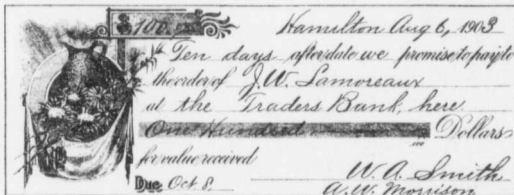 $100.00 Hamilton Aug 6, 1903
Ten days after date we promise to pay to
the order of J. W. Lamoreaux
at the Traders Bank, here
One Hundred Dollars
for value received
W. A. Smith
Due Oct 8. A. W. Morrison